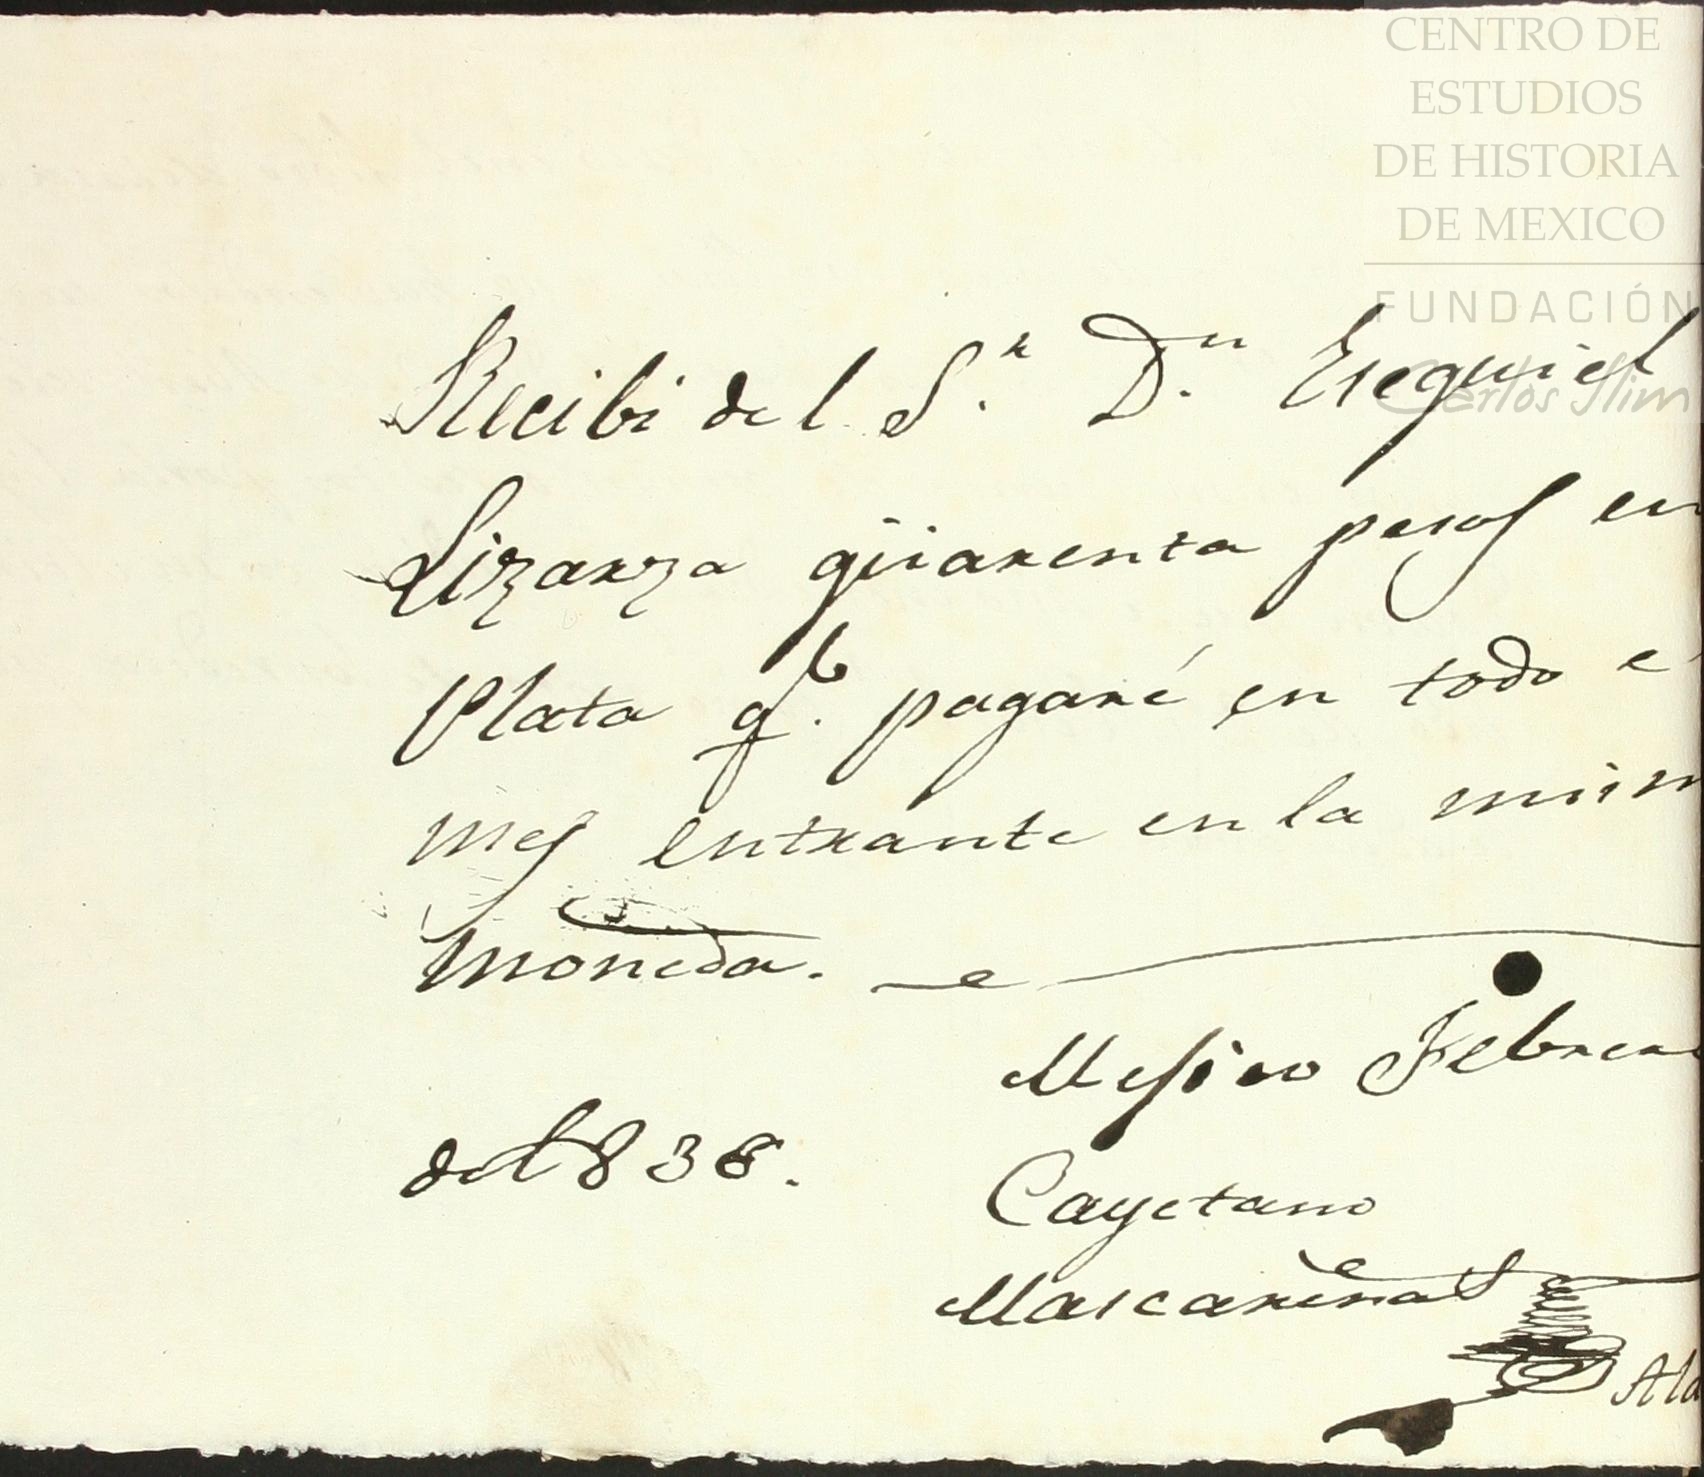 CENTRO DE
ESTUDIOS
DE HISTORIA
DE MEXICO
FUNDACIÓN
Carlos Slim
Recibi del S.r D.n Esequiel
Lizarza qüarenta pesos en
Plata q.e pagaré en todo e
mes entrante en la mism
moneda.
Mesico Febrero
de 1838.
Cayetano
Mascareñas